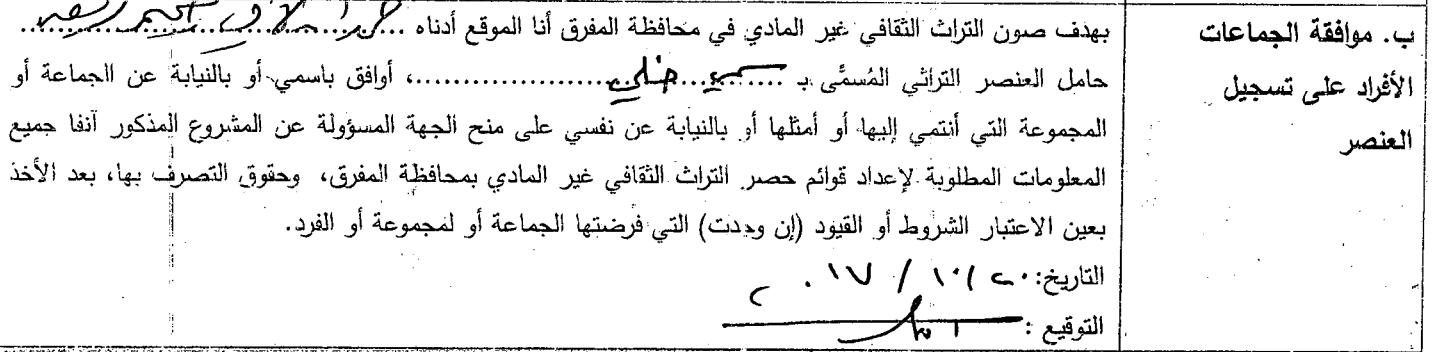 ب. موافقة الجماعات
الأفراد على تسجيل
العنصر
بهدف صون التراث الثقافي غير المادي في محافظة المفرق أنا الموقع أدناه
حامل العنصر التراثي المُسمَّى بـ ......، أوافق باسمي أو بالنيابة عن الجماعة أو
المجموعة التي أنتمي إليها أو أمثلها أو بالنيابة عن نفسي على منح الجهة المسؤولة عن المشروع المذكور آنفا جميع
المعلومات المطلوبة لإعداد قوائم حصر التراث الثقافي غير المادي بمحافظة المفرق، وحقوق التصرف بها، بعد الأخذ
بعين الاعتبار الشروط أو القيود (إن وجدت) التي فرضتها الجماعة أو لمجموعة أو الفرد.
التاريخ: ٢٠ / ١٠ / ٢٠١٧
التوقيع :